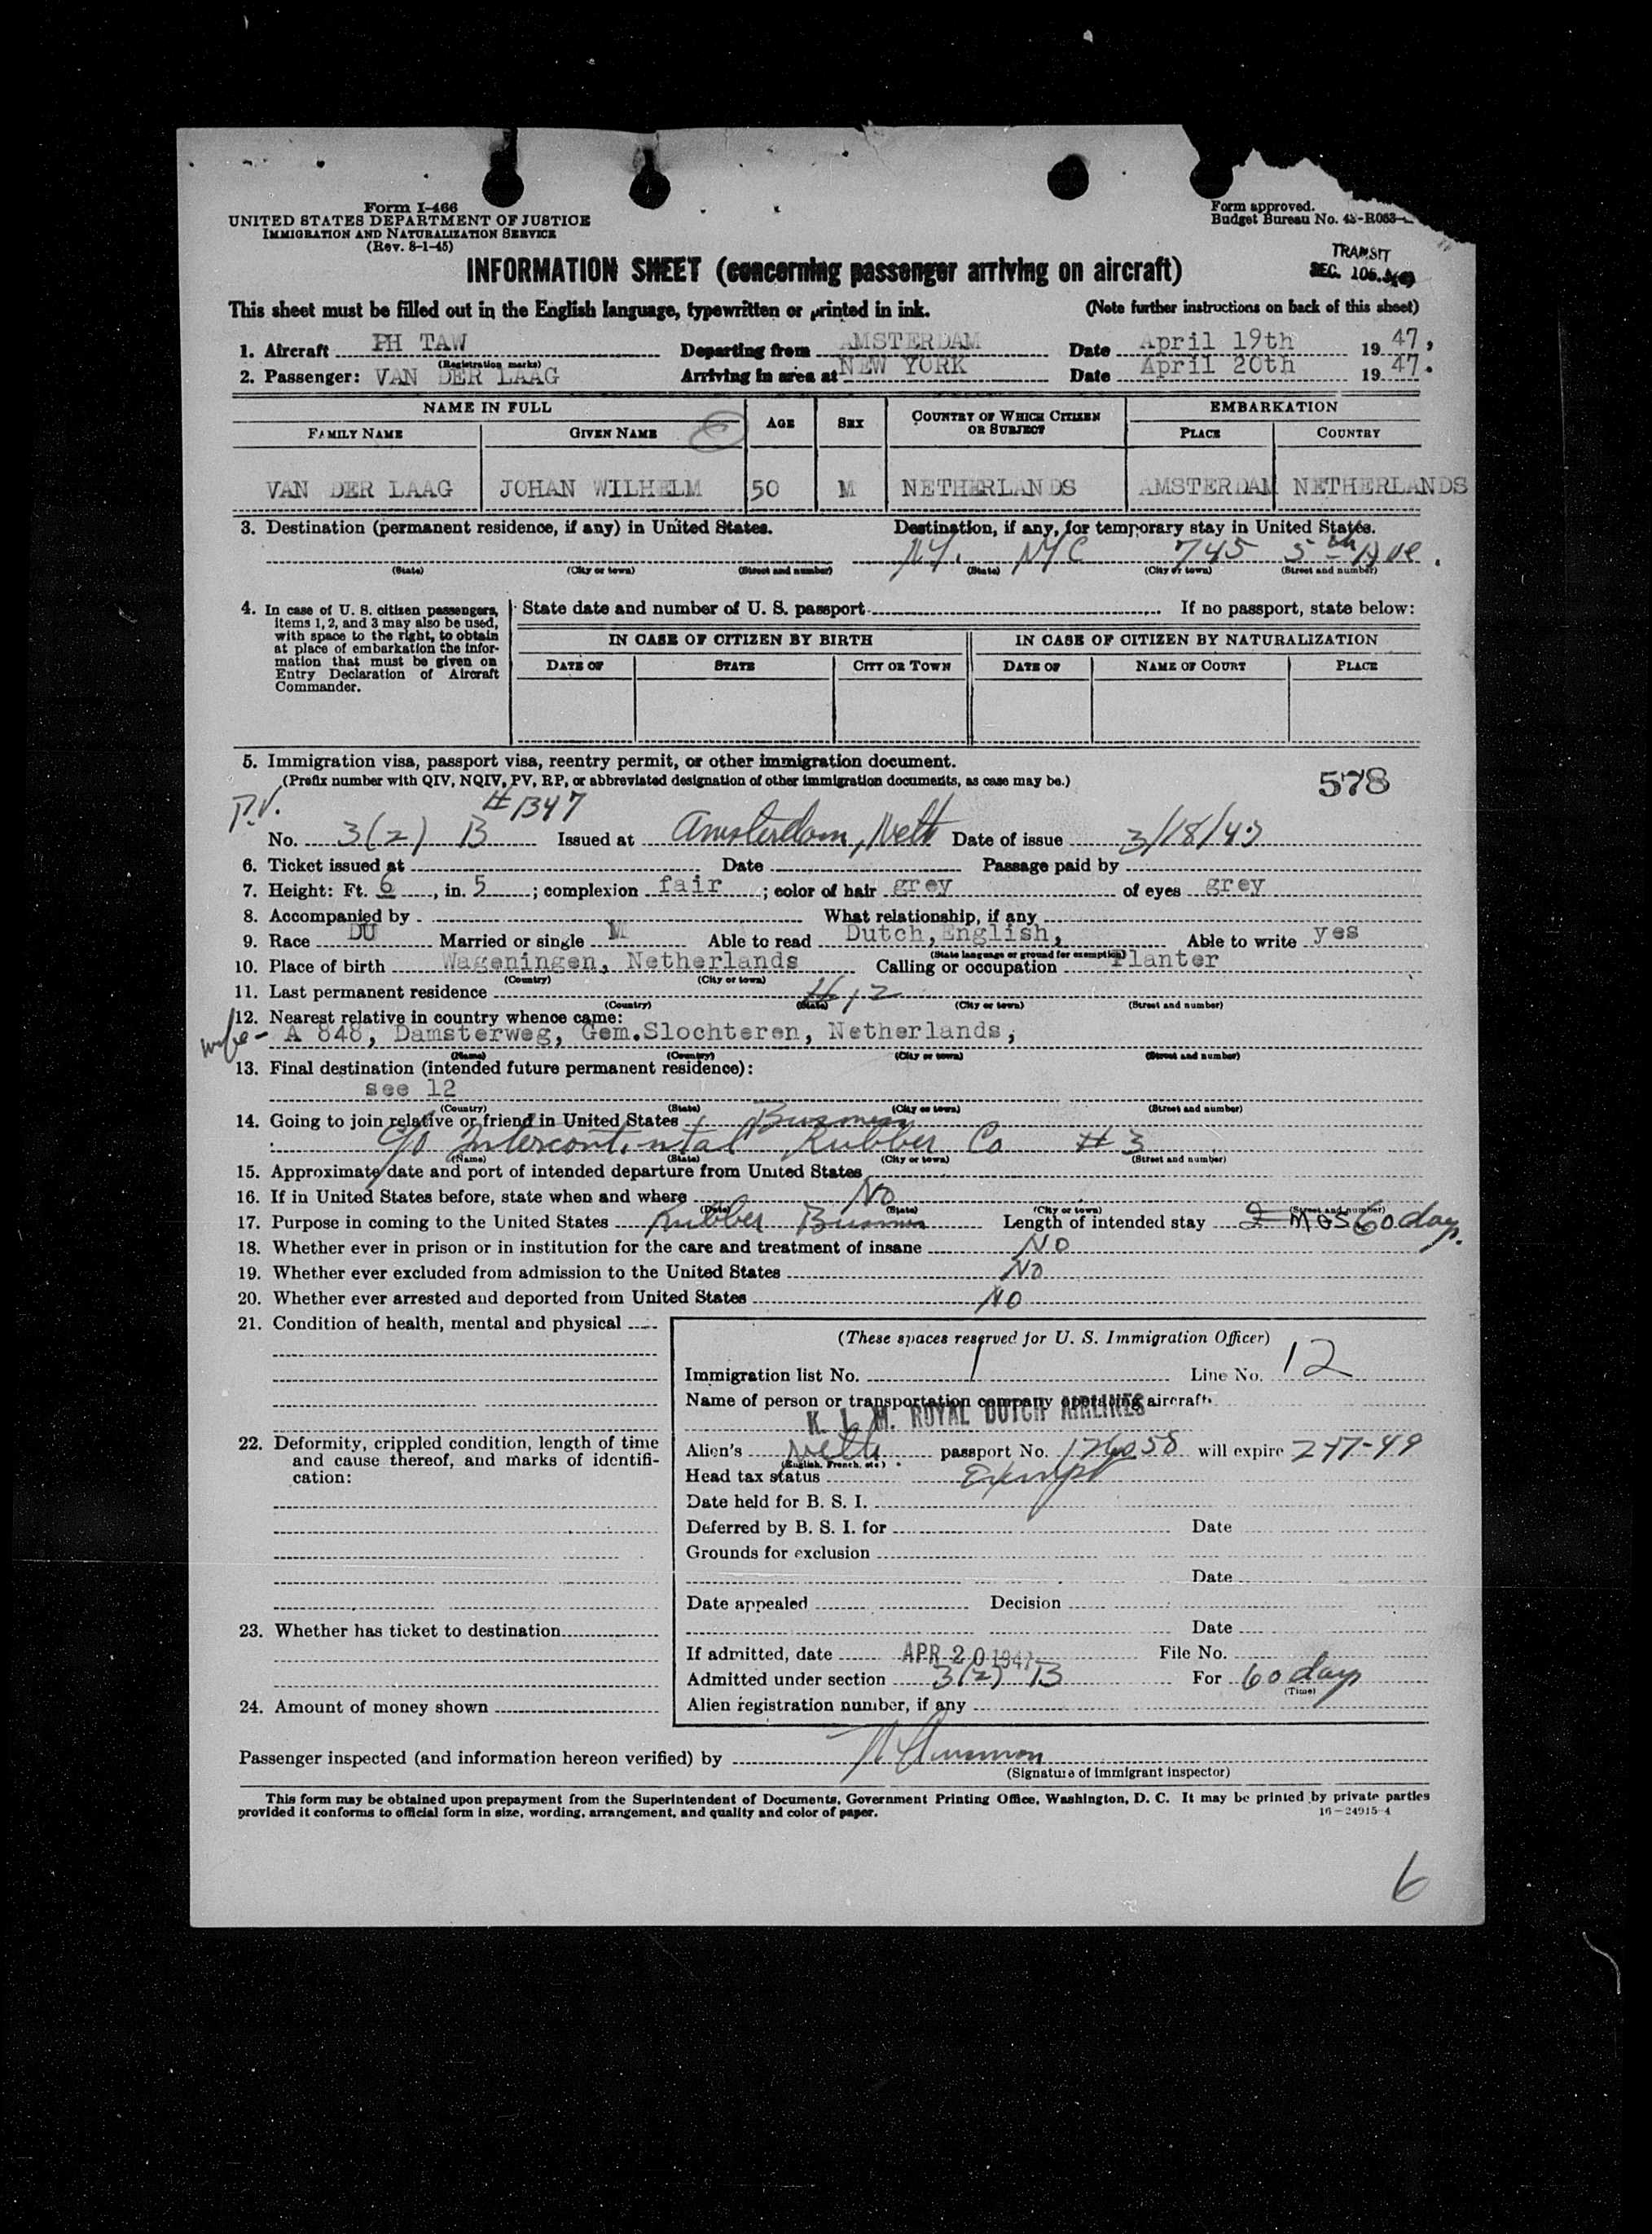 Form I-466
UNITED STATES DEPARTMENT OF JUSTICE
IMMIGRATION AND NATURALIZATION SERVICE
(Rev. 8-1-45)
Form approved.
Budget Bureau No. 43-R083-
TRANSIT
SEC. 106.
INFORMATION SHEET (concerning passenger arriving on aircraft)
This sheet must be filled out in the English language, typewritten or printed in ink. (Note further instructions on back of this sheet)
1. Aircraft PH TAW Departing from AMSTERDAM Date April 19th 1947,
(Registration marks)
2. Passenger: VAN DER LAAG Arriving in area at NEW YORK Date April 20th 1947.
NAME IN FULL AGE SEX COUNTRY OF WHICH CITIZEN OR SUBJECT EMBARKATION
FAMILY NAME GIVEN NAME PLACE COUNTRY
VAN DER LAAG JOHAN WILHELM 50 M NETHERLANDS AMSTERDAM NETHERLANDS
3. Destination (permanent residence, if any) in United States. Destination, if any, for temporary stay in United States.
N.Y. NYC 745 5th Ave.
(State) (City or town) (Street and number) (State) (City or town) (Street and number)
4. In case of U. S. citizen passengers, items 1, 2, and 3 may also be used, with space to the right, to obtain at place of embarkation the information that must be given on Entry Declaration of Aircraft Commander.
State date and number of U. S. passport If no passport, state below:
IN CASE OF CITIZEN BY BIRTH IN CASE OF CITIZEN BY NATURALIZATION
DATE OF STATE CITY OR TOWN DATE OF NAME OF COURT PLACE
5. Immigration visa, passport visa, reentry permit, or other immigration document.
(Prefix number with QIV, NQIV, PV, RP, or abbreviated designation of other immigration documents, as case may be.)
578
P.V. #1347
No. 3(2) B Issued at Amsterdam, Neth Date of issue 3/18/47
6. Ticket issued at Date Passage paid by
7. Height: Ft. 6, in. 5; complexion fair; color of hair grey of eyes grey
8. Accompanied by What relationship, if any
9. Race DU Married or single M Able to read Dutch, English, Able to write yes
(State language or ground for exemption)
10. Place of birth Wageningen, Netherlands Calling or occupation Planter
(Country) (City or town)
11. Last permanent residence #12
(Country) (State) (City or town) (Street and number)
12. Nearest relative in country whence came:
wife - A 848, Damsterweg, Gem.Slochteren, Netherlands,
(Name) (Country) (City or town) (Street and number)
13. Final destination (intended future permanent residence):
see 12
(Country) (State) (City or town) (Street and number)
14. Going to join relative or friend in United States Business
c/o Intercontinental Rubber Co #3
(Name) (State) (City or town) (Street and number)
15. Approximate date and port of intended departure from United States
16. If in United States before, state when and where No
(Date) (State) (City or town) (Street and number)
17. Purpose in coming to the United States Rubber Business Length of intended stay 2 MOS 60 days.
18. Whether ever in prison or in institution for the care and treatment of insane NO
19. Whether ever excluded from admission to the United States NO
20. Whether ever arrested and deported from United States NO
21. Condition of health, mental and physical
(These spaces reserved for U. S. Immigration Officer)
Immigration list No. 1 Line No. 12
Name of person or transportation company operating aircraft
K. L. M. ROYAL DUTCH AIRLINES
22. Deformity, crippled condition, length of time and cause thereof, and marks of identification:
Alien's Neth passport No. 126058 will expire 2-17-49
(English, French, etc.)
Head tax status Exempt
Date held for B. S. I.
Deferred by B. S. I. for Date
Grounds for exclusion
Date
Date appealed Decision
23. Whether has ticket to destination
Date
If admitted, date APR 20 1947 File No.
Admitted under section 3(2) B For 60 days
(Time)
24. Amount of money shown
Alien registration number, if any
Passenger inspected (and information hereon verified) by
(Signature of immigrant inspector)
This form may be obtained upon prepayment from the Superintendent of Documents, Government Printing Office, Washington, D. C. It may be printed by private parties
provided it conforms to official form in size, wording, arrangement, and quality and color of paper.
16-24915-4
6